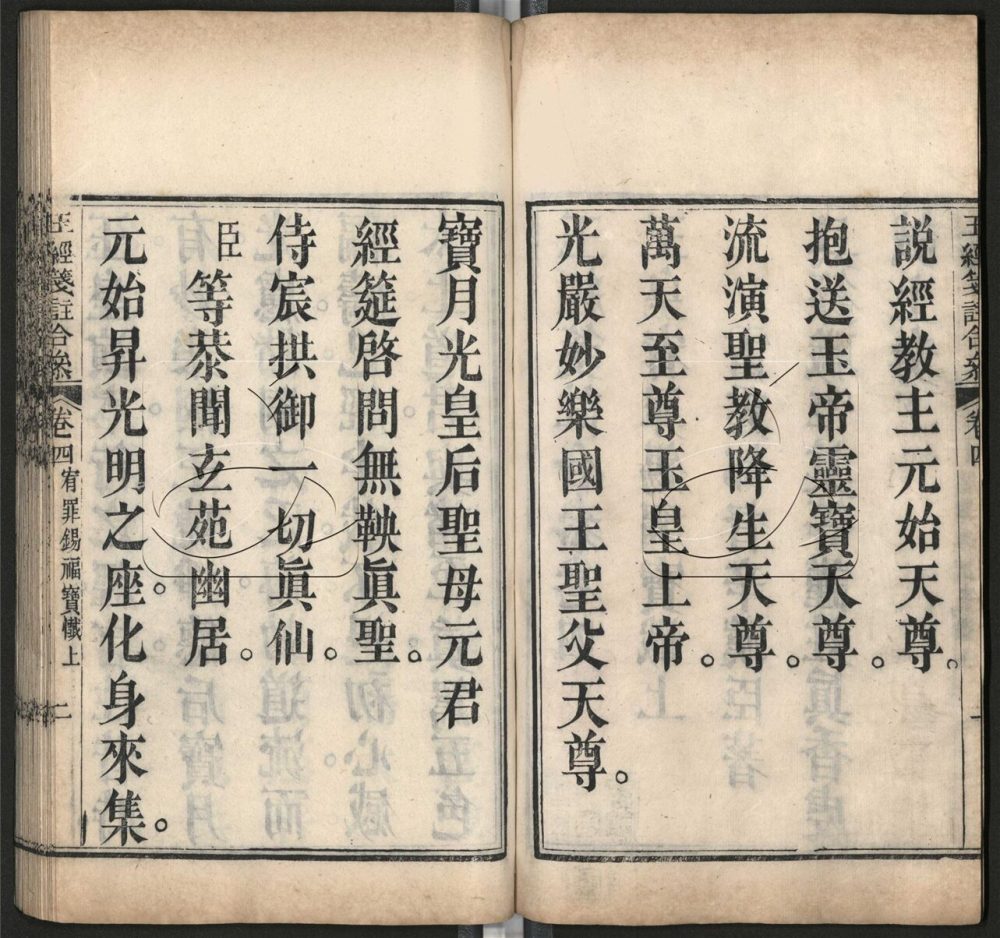 玉經箋註合參 卷四
說經教主元始天尊。
抱送玉帝靈寶天尊。
流演聖教降生天尊。
萬天至尊玉皇上帝。
光嚴妙樂國王聖父天尊。
寶月光皇后聖母元君
經筵啓問無鞅眞聖。
侍宸拱御一切眞仙。
臣等恭聞玄苑幽居。
元始昇光明之座。化身來集。
玉經箋註合參 卷四 宥罪錫福寶懺上 二